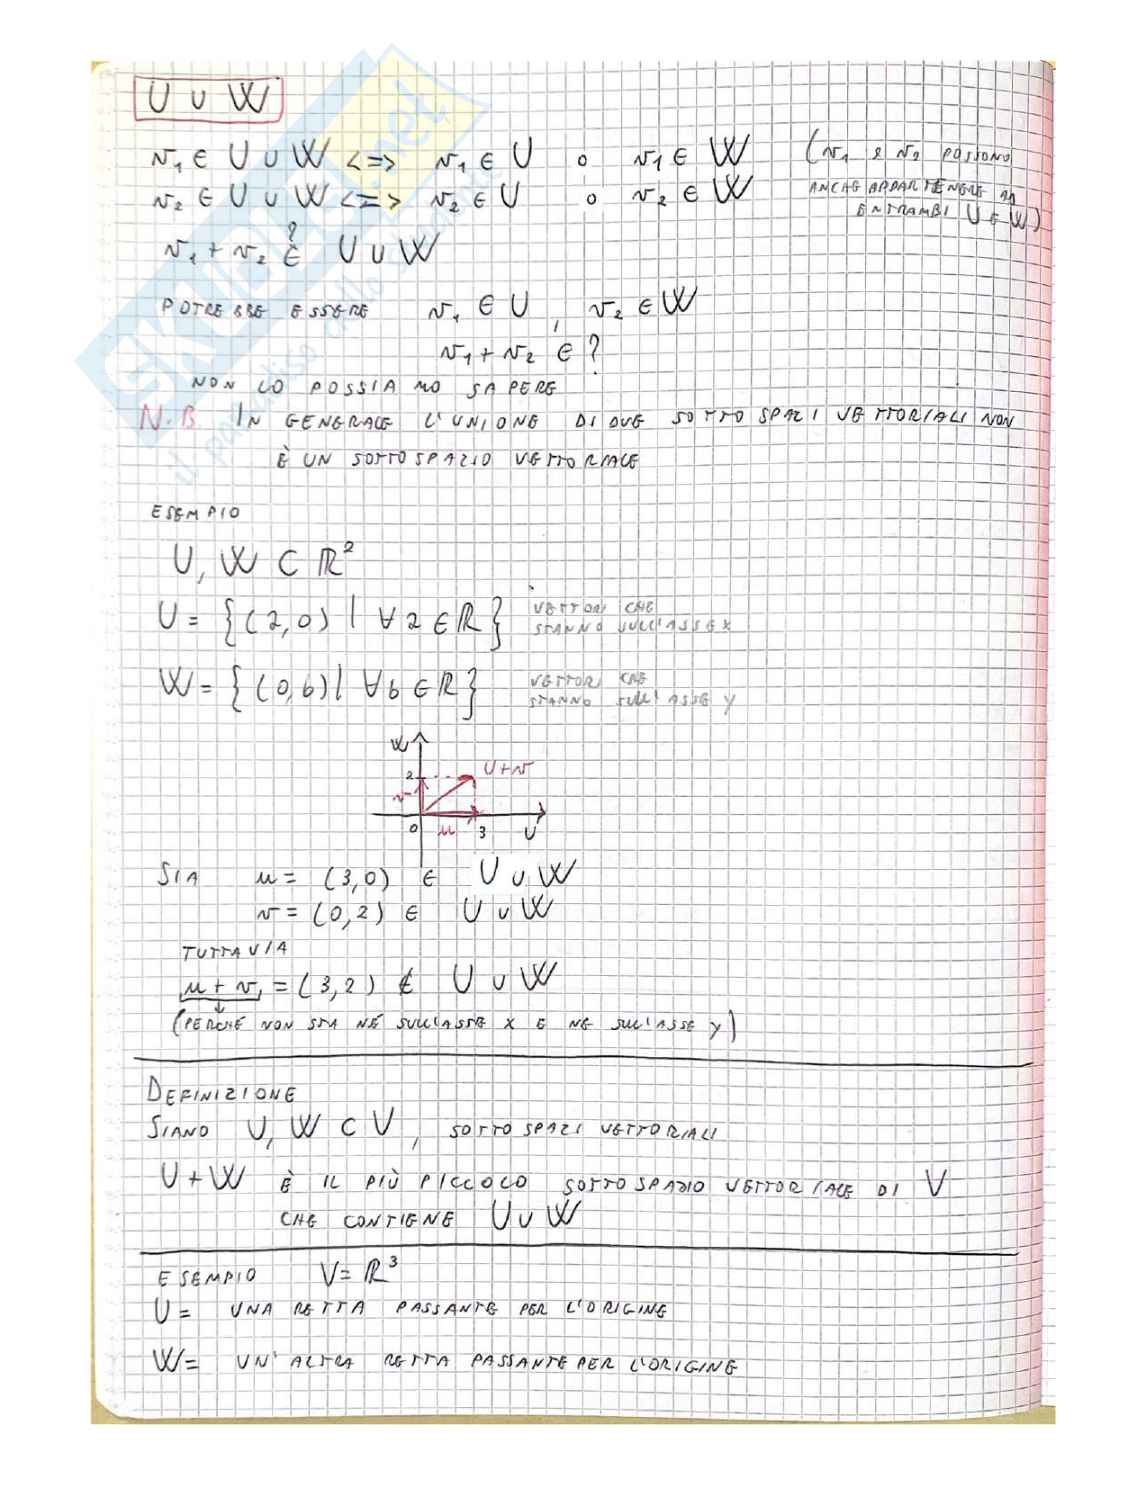 U ∪ W
v₁ ∈ U ∪ W <=> v₁ ∈ U o v₁ ∈ W (v₁ e v₂ POSSONO
v₂ ∈ U ∪ W <=> v₂ ∈ U o v₂ ∈ W ANCHE APPARTENERE AD
ENTRAMBI U E W)
?
v₁ + v₂ ∈ U ∪ W
POTREBBE ESSERE v₁ ∈ U, v₂ ∈ W
v₁ + v₂ ∈ ?
NON LO POSSIAMO SAPERE
N.B. IN GENERALE L'UNIONE DI DUE SOTTOSPAZI VETTORIALI NON
È UN SOTTOSPAZIO VETTORIALE
ESEMPIO
U, W ⊂ ℝ²
U = {(a,0) | ∀a ∈ ℝ} VETTORI CHE
STANNO SULL'ASSE X
W = {(0,b) | ∀b ∈ ℝ} VETTORI CHE
STANNO SULL'ASSE Y
W
2 U+v
v
0 u 3 U
SIA u = (3,0) ∈ U ∪ W
v = (0,2) ∈ U ∪ W
TUTTAVIA
u + v = (3,2) ∉ U ∪ W
(PERCHÉ NON STA NÉ SULL'ASSE X E NE SULL'ASSE Y)
DEFINIZIONE
SIANO U, W ⊂ V, SOTTOSPAZI VETTORIALI
U + W È IL PIÙ PICCOLO SOTTOSPAZIO VETTORIALE DI V
CHE CONTIENE U ∪ W
ESEMPIO V = ℝ³
U = UNA RETTA PASSANTE PER L'ORIGINE
W = UN'ALTRA RETTA PASSANTE PER L'ORIGINE
SKUOLA.net
il paradiso dello studente